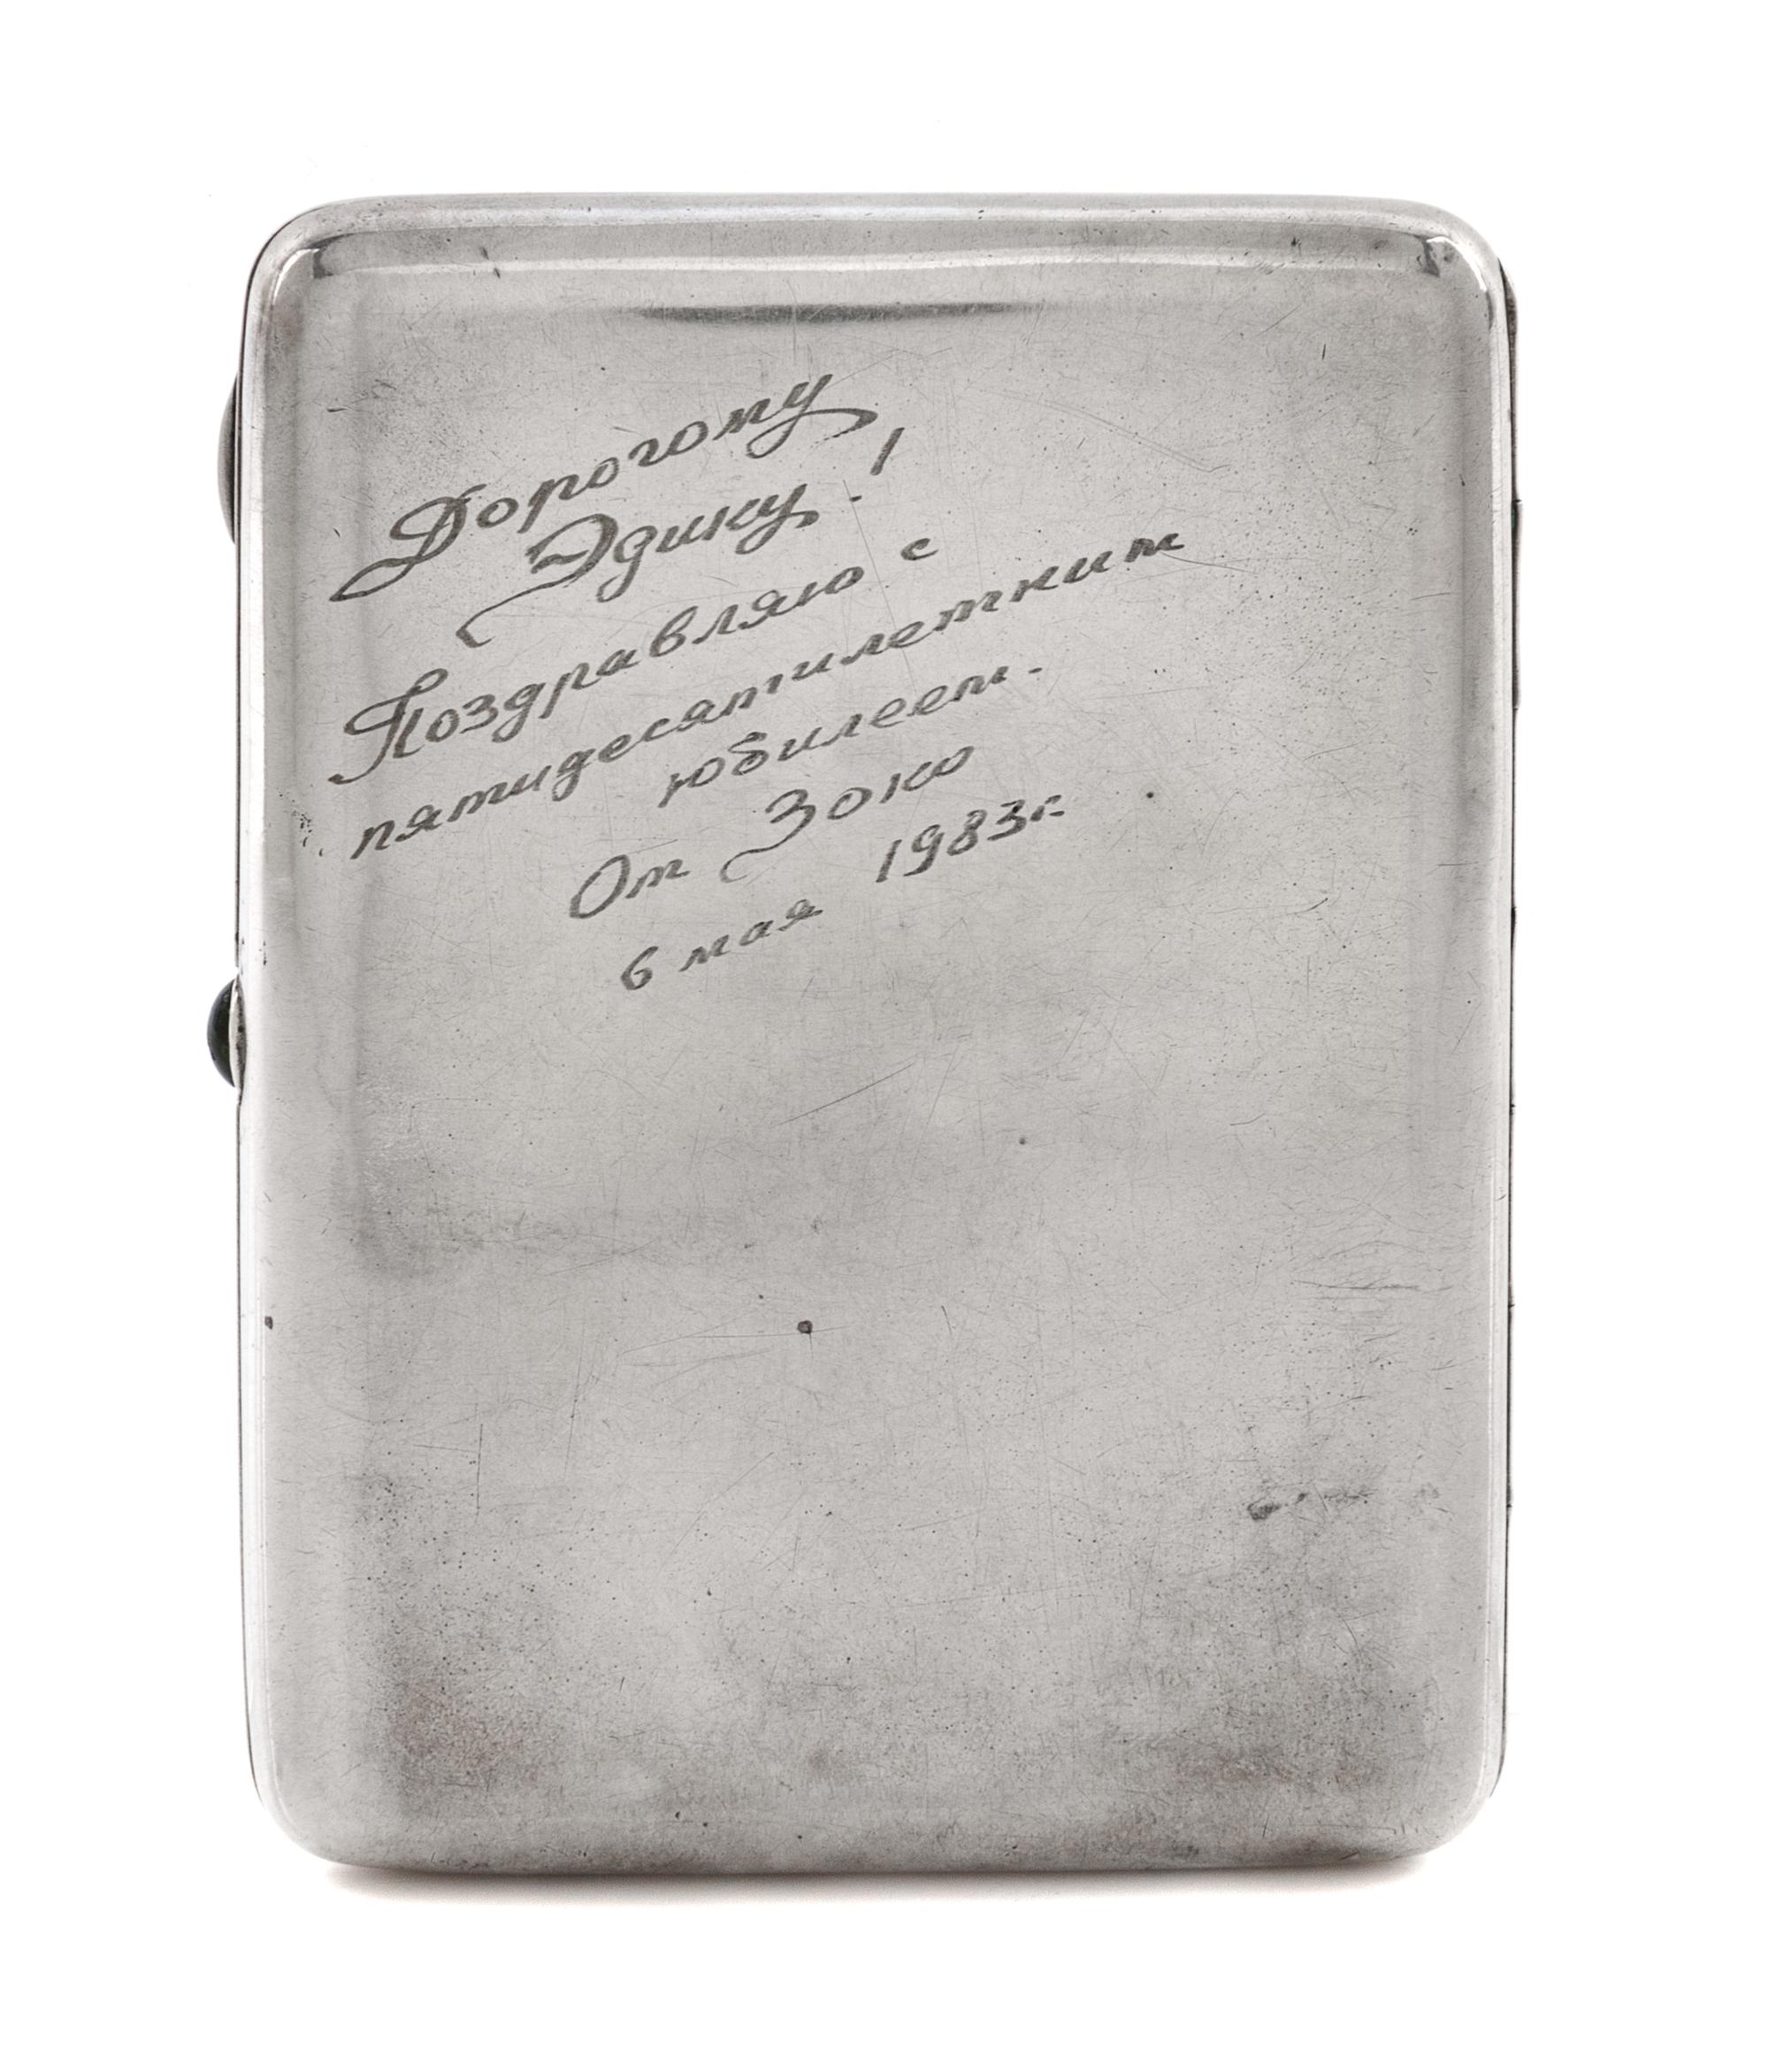 Дорогому
Эдику!
Поздравляю с
пятидесятилетним
юбилеем.
От Зою
6 мая 1983г.